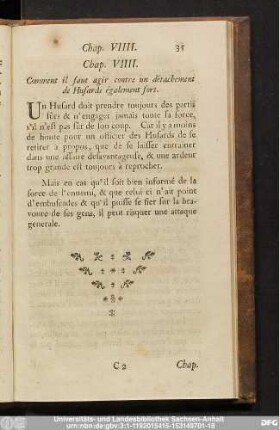 Chap. VIIII. 35
Chap. VIIII.
Comment il faut agir contre un détachement
de Husards également fort.
Un Husard doit prendre toujours des partis
sûrs & n'engager jamais toute sa force,
s'il n'est pas sûr de son coup. Car il y a moins
de honte pour un officier des Husards de se
retirer à propos, que de se laisser entrainer
dans une affaire desavantageuse, & une ardent
trop grande est toujours à reprocher.
Mais en cas qu'il soit bien informé de la
force de l'ennemi, & que celui ci n'ait point
d'embuscades & qu'il puisse se fier sur la bra-
voure de ses gens, il peut risquer une attaque
generale.
C 2 Chap.
Universitäts- und Landesbibliothek Sachsen-Anhalt
urn:nbn:de:gbv:3:1-1192015415-153149701-18
DFG